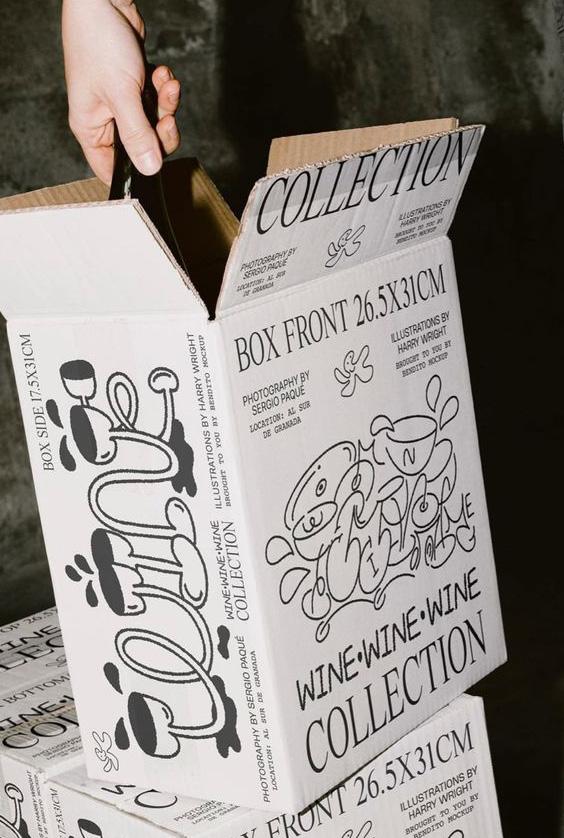 COLLECTION
PHOTOGRAPHY BY
SERGIO PAQUÉ
LOCATION: AL SUR
DE GRANADA
ILLUSTRATIONS BY
HARRY WRIGHT
BROUGHT TO YOU BY
BENDITO MOCKUP
BOX FRONT 26.5X31CM
PHOTOGRAPHY BY
SERGIO PAQUÉ
LOCATION: AL SUR
DE GRANADA
ILLUSTRATIONS BY
HARRY WRIGHT
BROUGHT TO YOU BY
BENDITO MOCKUP
WINE•WINE•WINE
COLLECTION
BOX SIDE 17.5X31CM
WINE
ILLUSTRATIONS BY HARRY WRIGHT
BROUGHT TO YOU BY BENDITO MOCKUP
WINE•WINE•WINE
COLLECTION
PHOTOGRAPHY BY SERGIO PAQUÉ
LOCATION: AL SUR DE GRANADA
BOX FRONT 26.5X31CM
ILLUSTRATIONS BY
HARRY WRIGHT
BROUGHT TO YOU BY
BENDITO MOCKUP